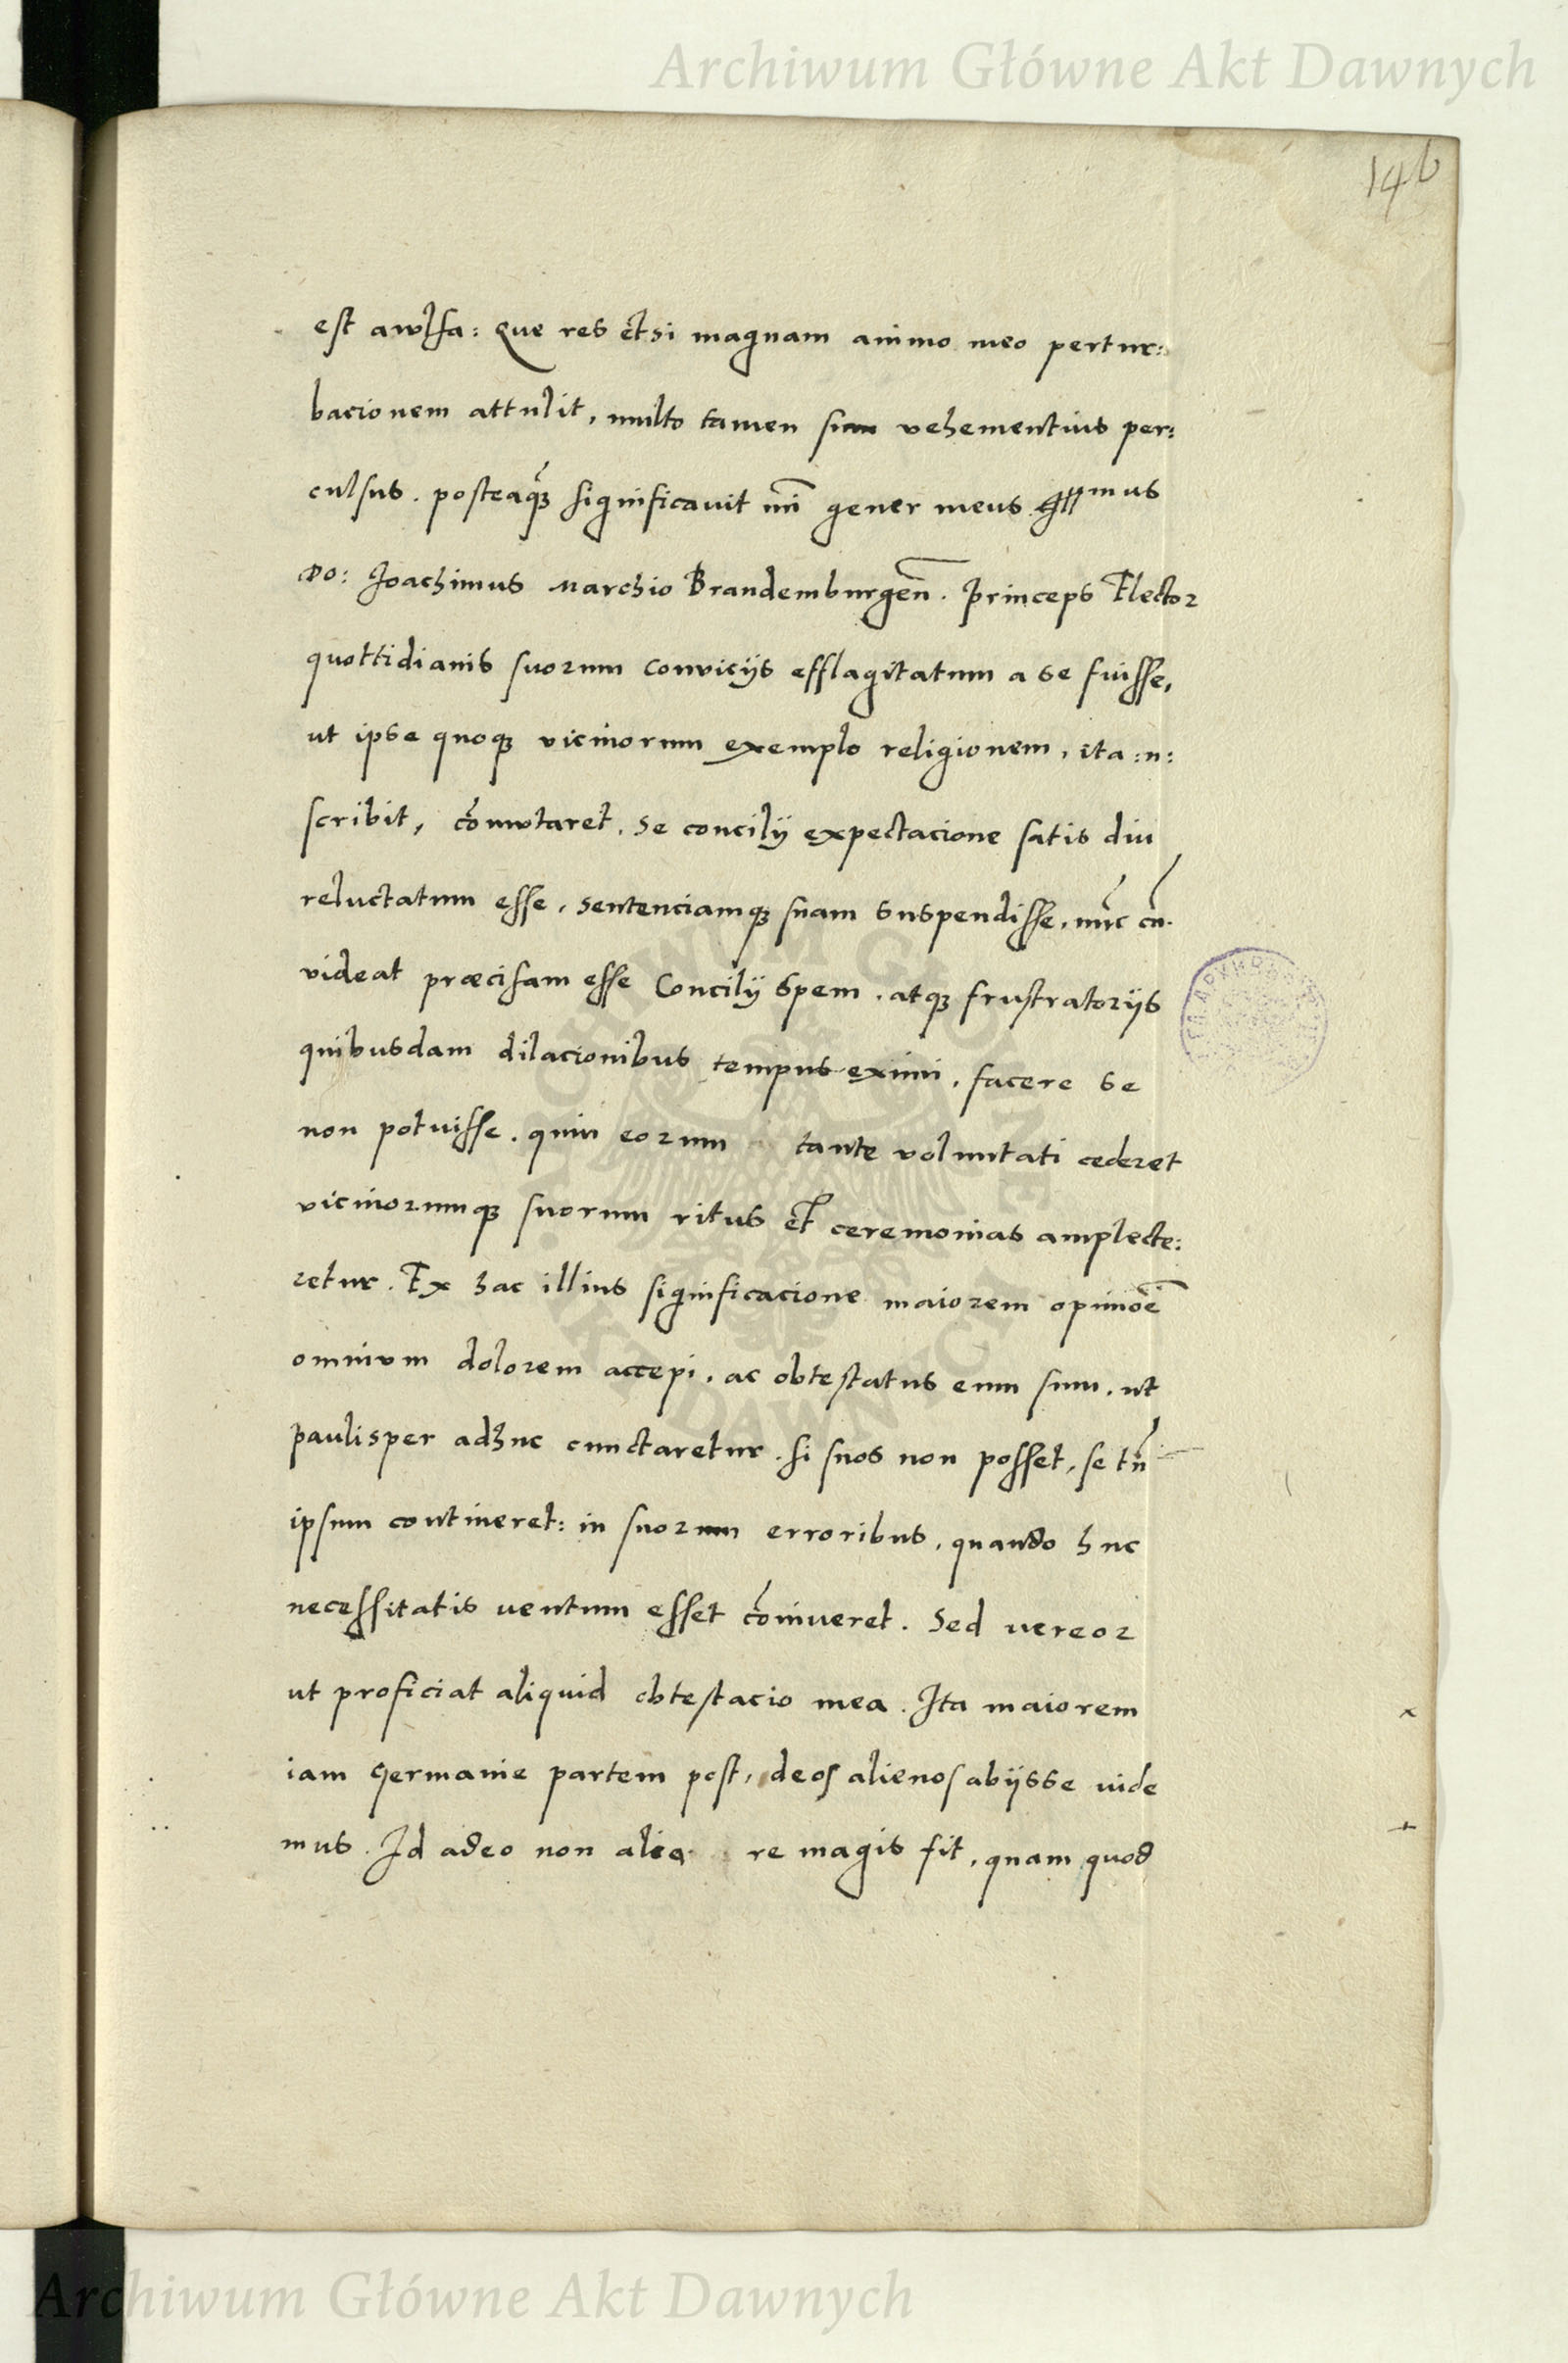 Archiwum Główne Akt Dawnych
146
est awlsa: Que res etsi magnam animo meo pertur:
bacionem attulit, multo tamen sum vehementius per:
culsus. posteaq̃ꝫ significavit mi͂ gener meus Illmus
Do: Joachimus Marchio Brandemburgen͂. Princeps Elector
quottidianis suorum conviciis efflagitatum a se fuisse,
ut ipse quoqꝫ vicinorum exemplo religionem, ita :n:
scribit, co͂mutaret. Se concilii expectacione satis diu
reluctatum esse, sentenciamqꝫ suam suspendisse, nu͂c cu͂.
videat præcisam esse Concilii spem, atqꝫ frustratoriis
quibusdam dilacionibus tempus eximi, facere se
non potuisse. quin eorum tante voluntati cederet
vicinorumqꝫ suorum ritus et ceremonias amplecte:
retur. Ex hac illius significacione maiorem opinioe͂
omnium dolorem accepi, ac obtestatus eum sum, ut
paulisper adhuc cunctaretur. si suos non posset, se tn͂
ipsum contineret: in suorum erroribus, quando huc
necessitatis ventum esset co͂niveret. Sed vereor
ut proficiat aliquid obtestacio mea. Ita maiorem
iam Germanie partem post, deos alienos abiisse vide
mus. Id adeo non alia re magis fit, quam quod
ARCHIWUM GŁÓWNE AKT DAWNYCH
Archiwum Główne Akt Dawnych